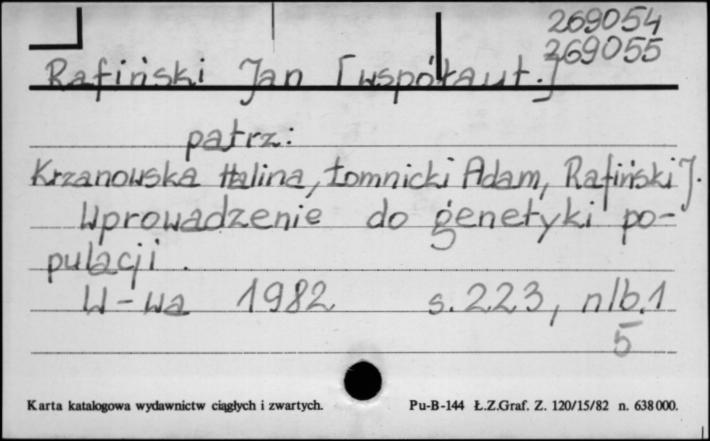 269054
269055
Rafiński Jan [współaut.]
patrz:
Krzanowska Halina, Łomnicki Adam, Rafiński J.
Wprowadzenie do genetyki po-
pulacji.
W-wa 1982 s. 223, nlb. 1
5
Karta katalogowa wydawnictw ciągłych i zwartych. Pu-B-144 Ł.Z.Graf. Z. 120/15/82 n. 638000.